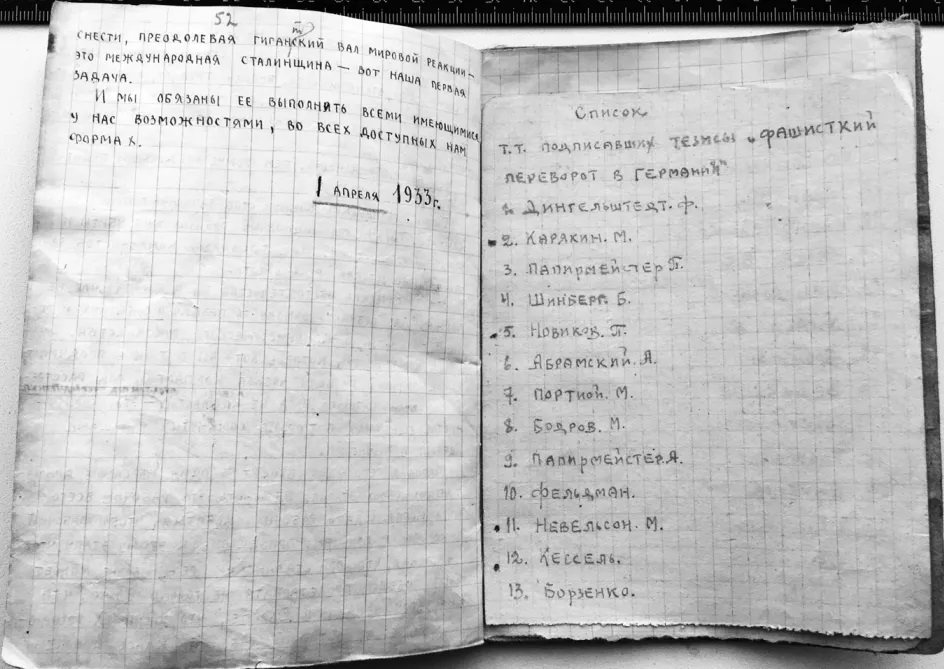 52
снести, преодолевая гигантский вал мировой реакции —
это международная сталинщина — вот наша первая
задача.
И мы обязаны ее выполнять всеми имеющимися
у нас возможностями, во всех доступных нам
формах.
1 апреля 1933г.
Список
т.т. подписавших тезисы „Фашисткий
переворот в Германии"
1. Дингельштедт. Ф.
2. Карякин. М.
3. Папирмейстер П.
4. Шинберг. Б.
5. Новиков. П.
6. Абрамский. А.
7. Портной. М.
8. Бодров. М.
9. Папирмейстер. А.
10. Фельдман.
11. Невельсон. М.
12. Кессель.
13. Борзенко.